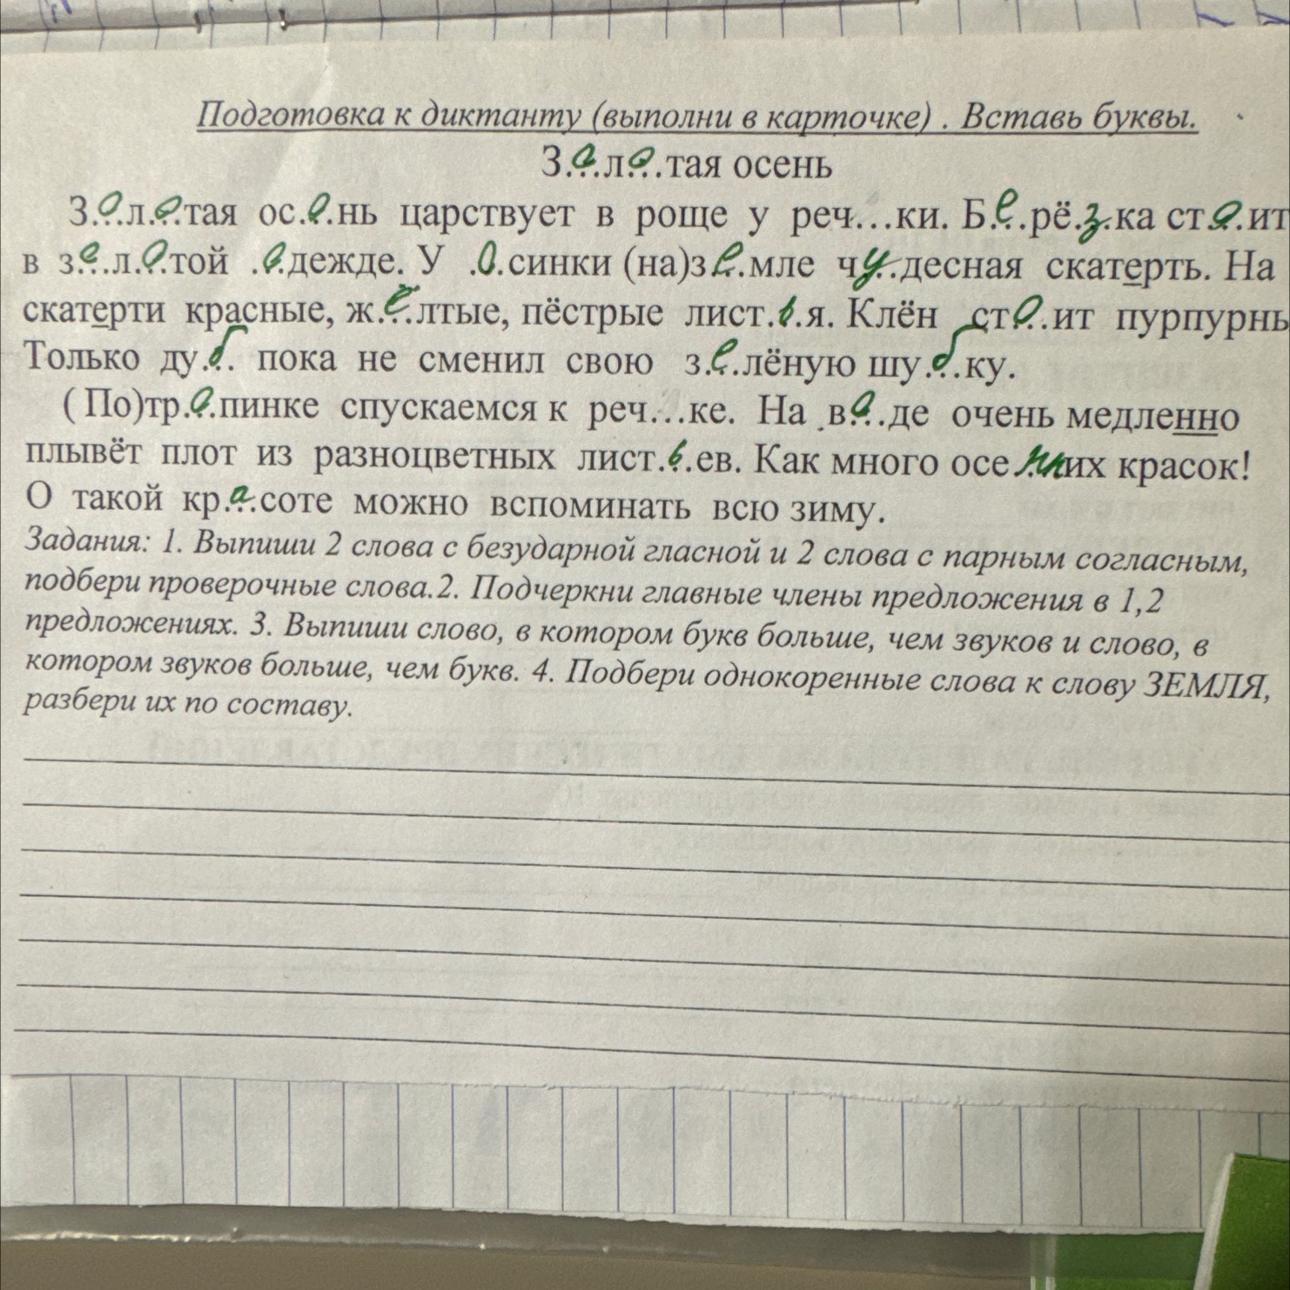 Подготовка к диктанту (выполни в карточке) . Вставь буквы.
З.о.л.о.тая осень
З.о.л.о.тая ос.е.нь царствует в роще у реч...ки. Б.е.рё.з.ка ст.о.ит
в з.о.л.о.той .о.дежде. У .о.синки (на)з.е.мле ч.у.десная скатерть. На
скатерти красные, ж.ё.лтые, пёстрые лист.ь.я. Клён ст.о.ит пурпурнь
Только ду.б. пока не сменил свою з.е.лёную шу.б.ку.
( По)тр.о.пинке спускаемся к реч...ке. На в.о.де очень медленно
плывёт плот из разноцветных лист.ь.ев. Как много осе.нн.их красок!
О такой кр.а.соте можно вспоминать всю зиму.
Задания: 1. Выпиши 2 слова с безударной гласной и 2 слова с парным согласным,
подбери проверочные слова.2. Подчеркни главные члены предложения в 1,2
предложениях. 3. Выпиши слово, в котором букв больше, чем звуков и слово, в
котором звуков больше, чем букв. 4. Подбери однокоренные слова к слову ЗЕМЛЯ,
разбери их по составу.